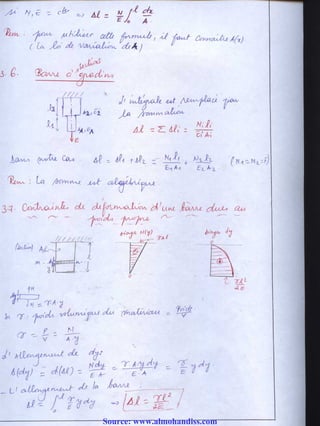 si N, E = cte => Δl = N/E ∫₀ˡ dx/A
Rem : pour utiliser cette formule, il faut connaitre A(x)
(la loi de variation de A)
3.6. Barre à gradins
sections
l'intégrale est remplacé par
la sommation
l2
l1
Δl = Σ Δli = Ni li / Ei Ai
dans notre cas Δl = Δl1 + Δl2 = N1 l1 / E1 A1 + N2 l2 / E2 A2 (N1 = N2 = F)
Rem : La somme est algébrique
3.7. Contrainte de déformation d'une barre dues au
poids propre
γ : poids volumique du matériau = Poids/V
γ = P/V = N/A y
d'allongement de dy
Δ(dy) = d(Δl) = N dy / E A = γ A y dy / E A = γ/E y dy
L'allongement de la barre :
Δl = ∫₀ˡ γ/E y dy => Δl = γl²/2E
Source: www.almohandiss.com